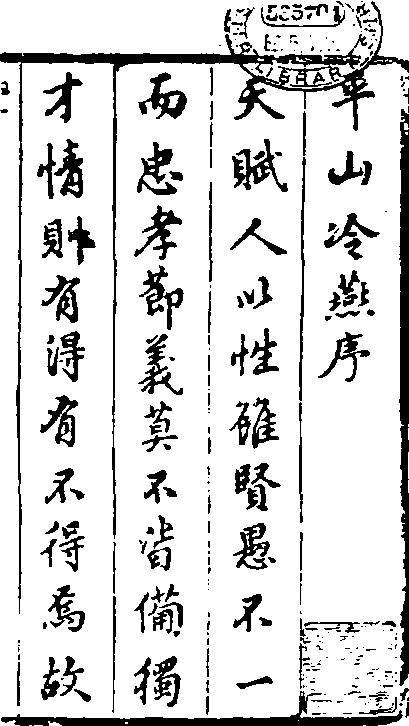 平山冷燕序
天賦人以性雖賢愚不一
而忠孝節義莫不皆備獨
才情則有得有不得焉故
LIBRARY